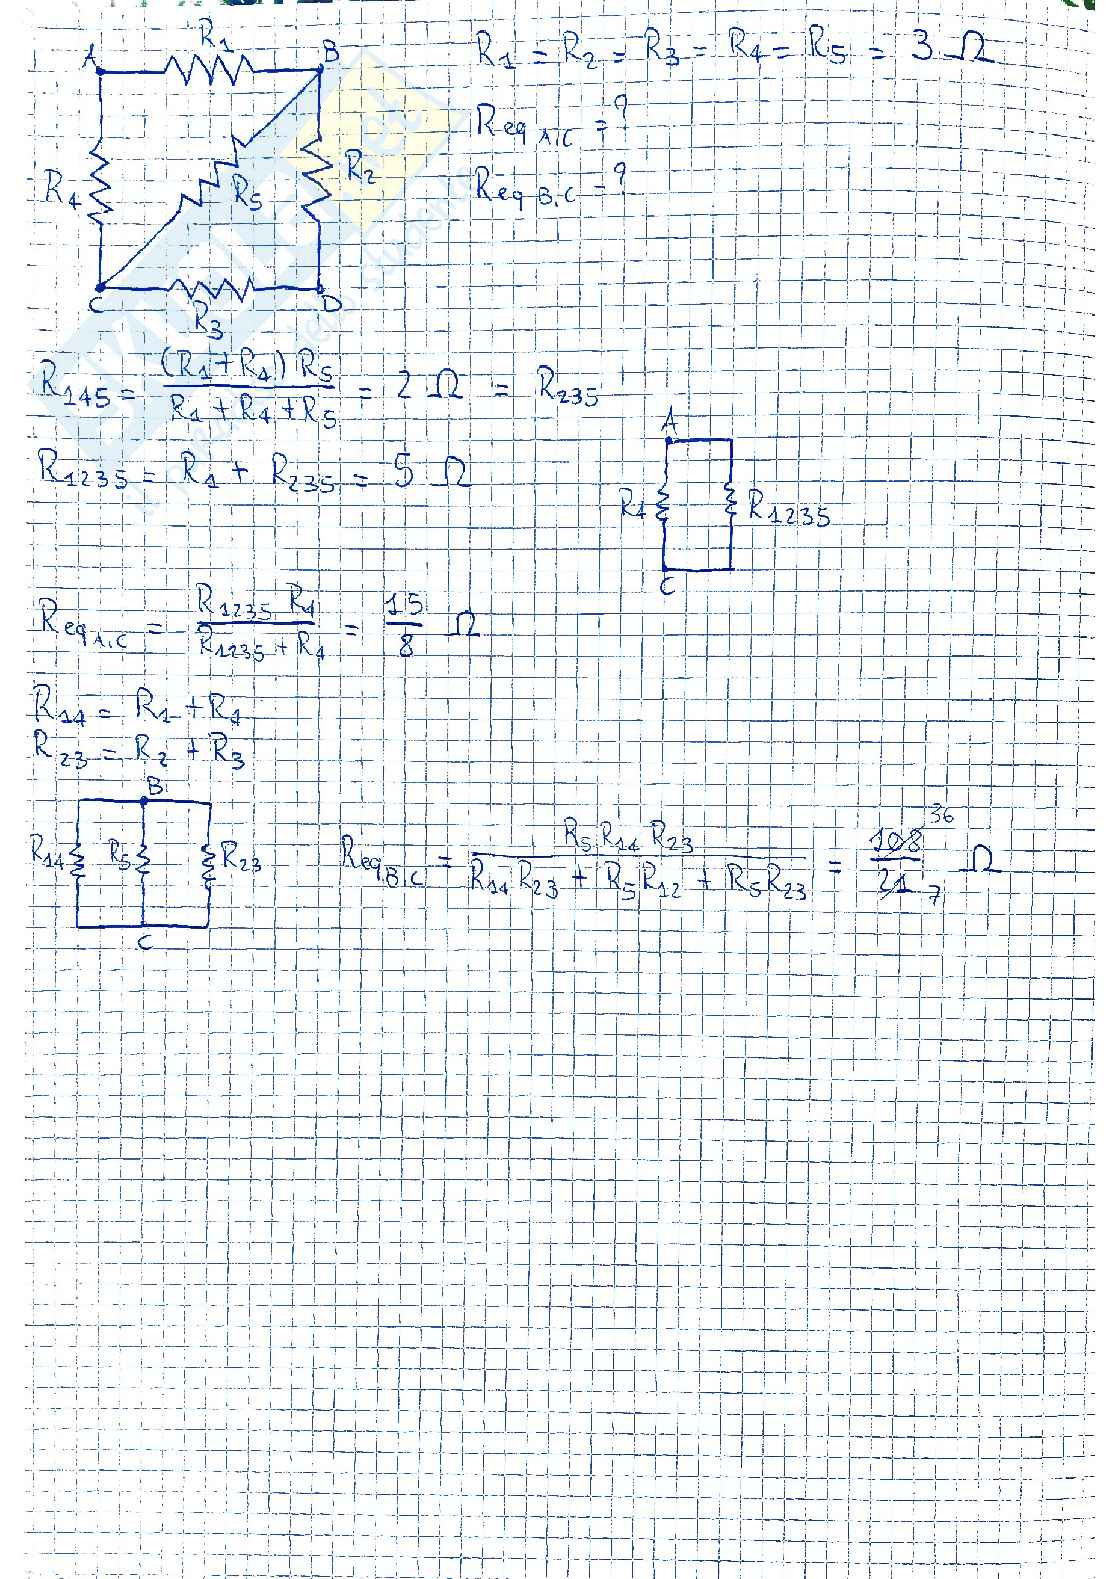 R1
A B
R1 = R2 = R3 = R4 = R5 = 3 Ω
Req A,C = ?
R4 R5 R2
Req B,C = ?
C D
R3
R145 = (R1 + R4) R5 / R1 + R4 + R5 = 2 Ω = R235
R1235 = R1 + R235 = 5 Ω
A
R4 R1235
C
Req A,C = R1235 R4 / R1235 + R4 = 15/8 Ω
R14 = R1 + R4
R23 = R2 + R3
B
R14 R5 R23
C
Req B,C = R5 R14 R23 / R14 R23 + R5 R12 + R5 R23 = 108/21 36/7 Ω